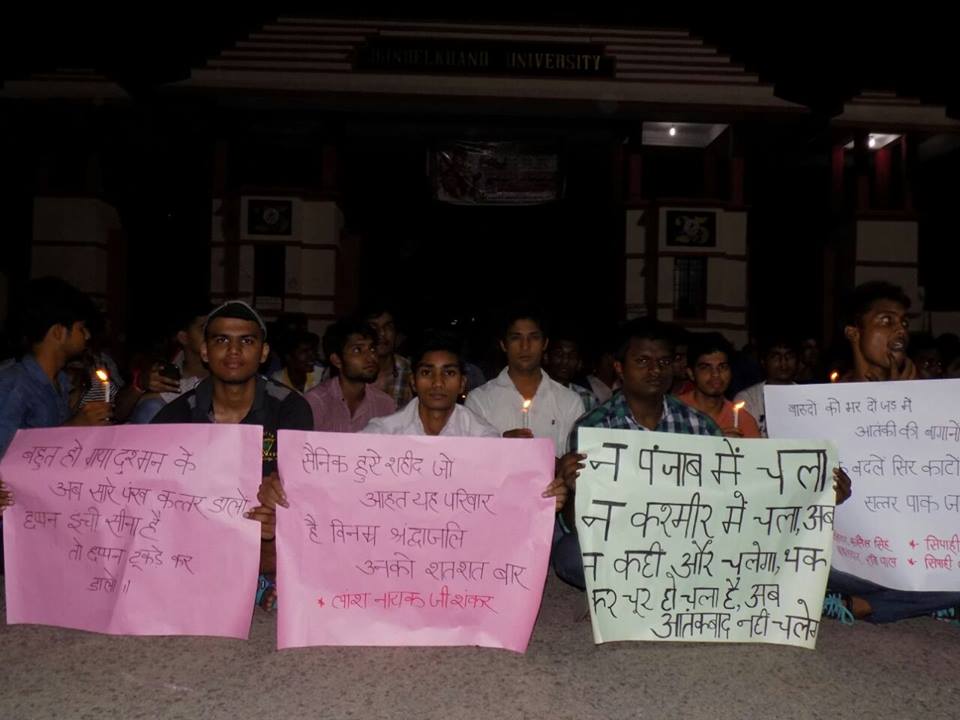 BUNDELKHAND UNIVERSITY
25
बहुत हो गया दुश्मन के
अब सारे पंख कत्तर डालो
छप्पन इची सीना है
तो छप्पन टूकडे कर
डालो॥
सैनिक हुऐ शहीद जो
आहत यह परिबार
है विनम्र श्रद्वाजलि
उनको शतशत बार
* लांश नायक जी शंकर
न पंजाब में चला
न कश्मीर में चला, अब
न कही और चलेगा, थक
कर चूर हो चला है, अब
आतंकबाद नही चलेगा
बारुदों को भर दो जड़ में
आतंकी की बागानो
बदलें सिर काटो
सत्तर पाक
सिंह * सिपाही
पाल * सिपाही